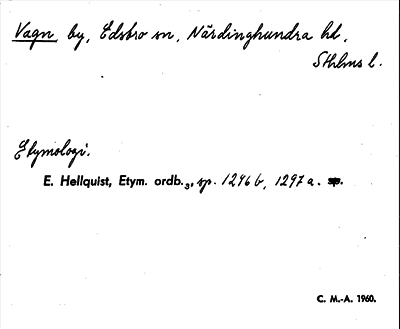 Vagn by, Edsbro sn, Närdinghundra hd,
Sthlms l.
Etymologi.
E. Hellquist, Etym. ordb.3, sp. 1296 b, 1297 a.
C. M.-A. 1960.